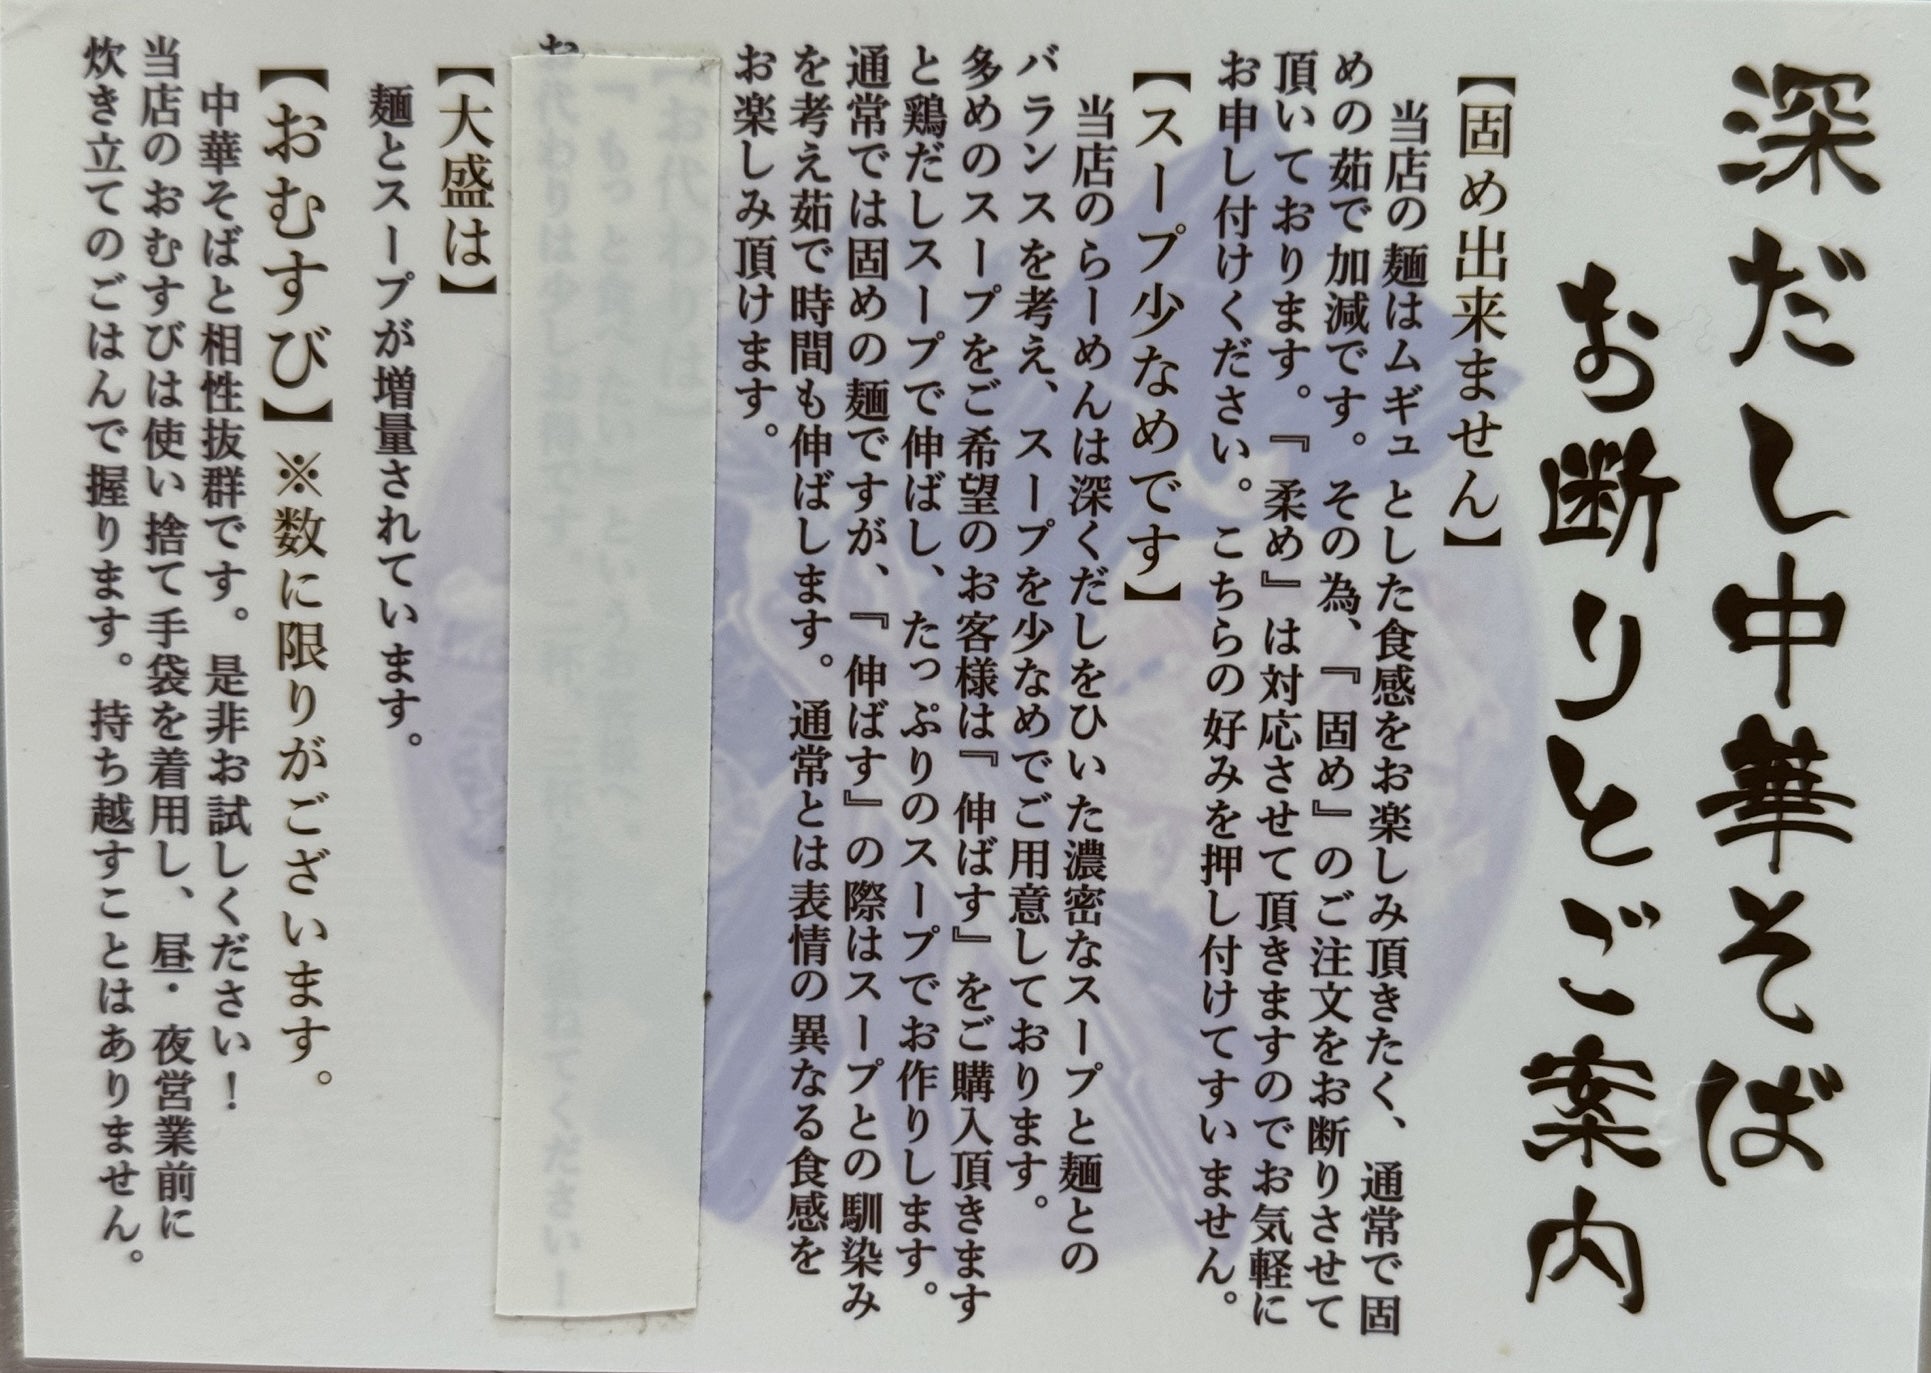 深だし中華そば
お断りとご案内
【固め出来ません】
当店の麺はムギュとした食感をお楽しみ頂きたく、通常で固
めの茹で加減です。その為、『固め』のご注文をお断りさせて
頂いております。『柔め』は対応させて頂きますのでお気軽に
お申し付けください。こちらの好みを押し付けてすいません。
【スープ少なめです】
当店のらーめんは深くだしをひいた濃密なスープと麺との
バランスを考え、スープを少なめでご用意しております。
多めのスープをご希望のお客様は『伸ばす』をご購入頂きます
と鶏だしスープで伸ばし、たっぷりのスープでお作りします。
通常では固めの麺ですが、『伸ばす』の際はスープとの馴染み
を考え茹で時間も伸ばします。通常とは表情の異なる食感を
お楽しみ頂けます。
【お代わりは】
【大盛は】
麺とスープが増量されています。
【おむすび】※数に限りがございます。
中華そばと相性抜群です。是非お試しください！
当店のおむすびは使い捨て手袋を着用し、昼・夜営業前に
炊き立てのごはんで握ります。持ち越すことはありません。